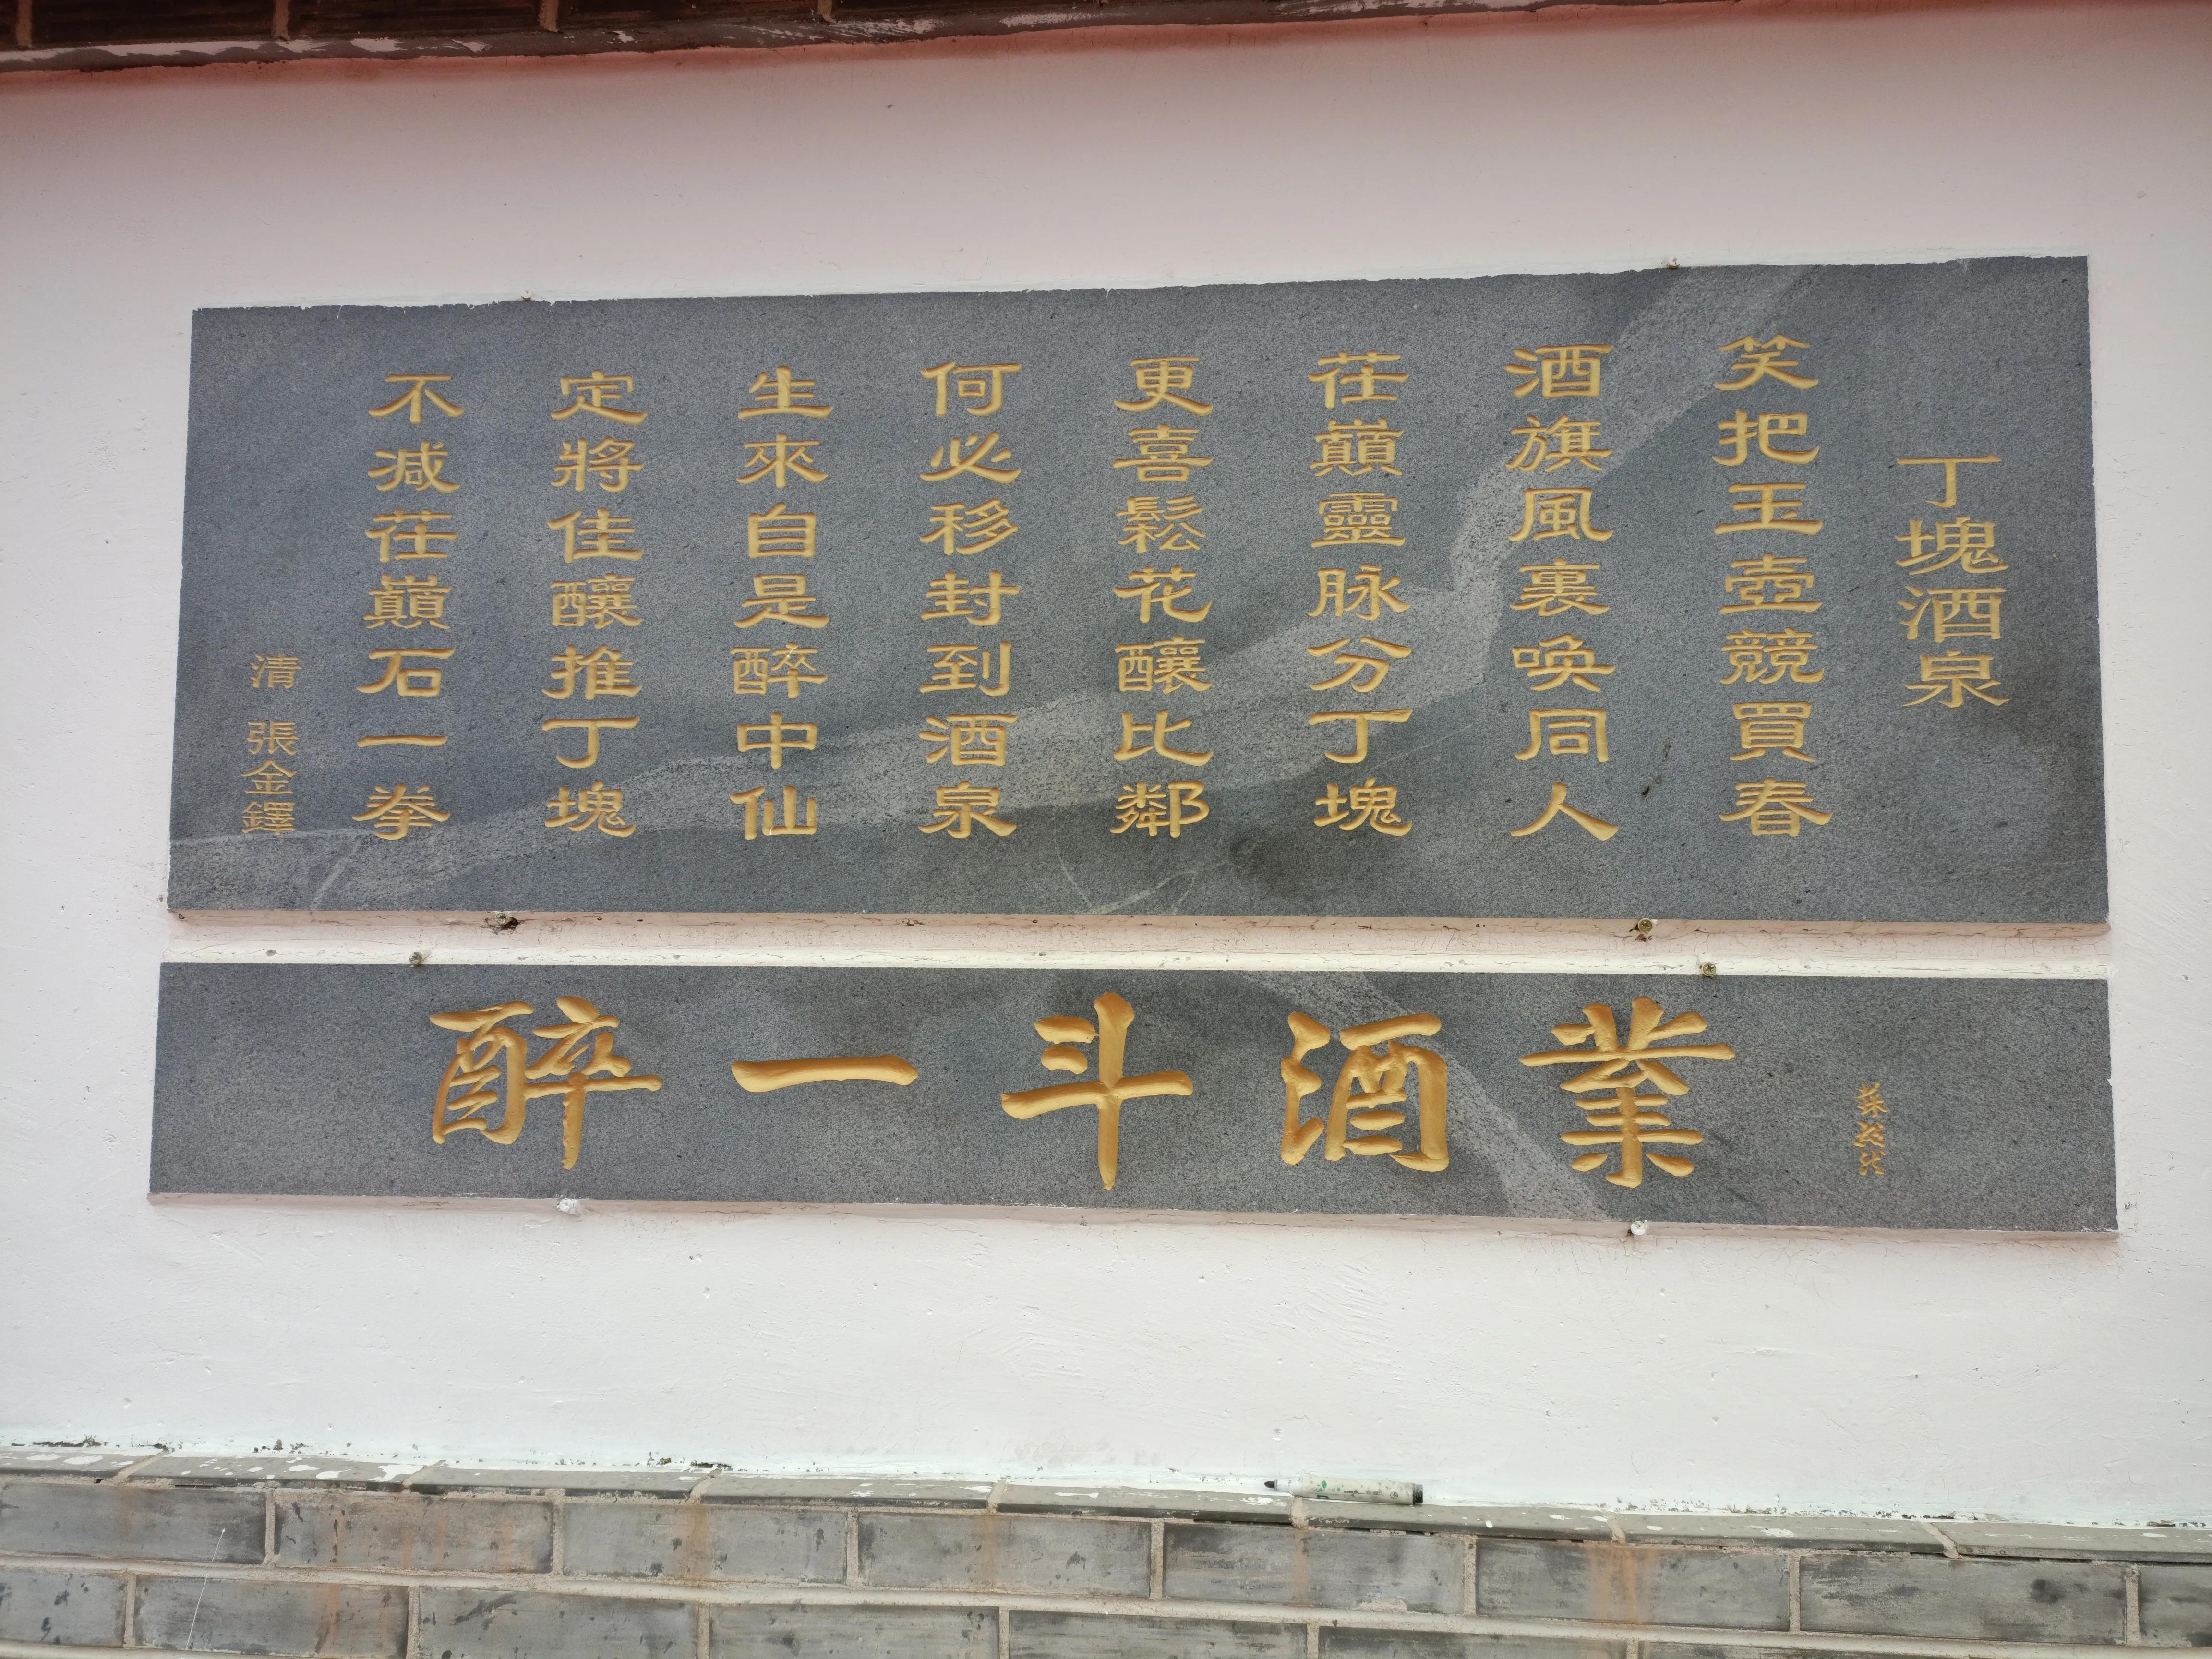 丁塊酒泉
笑把玉壺競買春
酒旗風裏唤同人
茌巔靈脉分丁塊
更喜鬆花釀比鄰
何必移封到酒泉
生來自是醉中仙
定將佳釀推丁塊
不减茌巔石一拳
清 張金鐸
醉一斗酒業